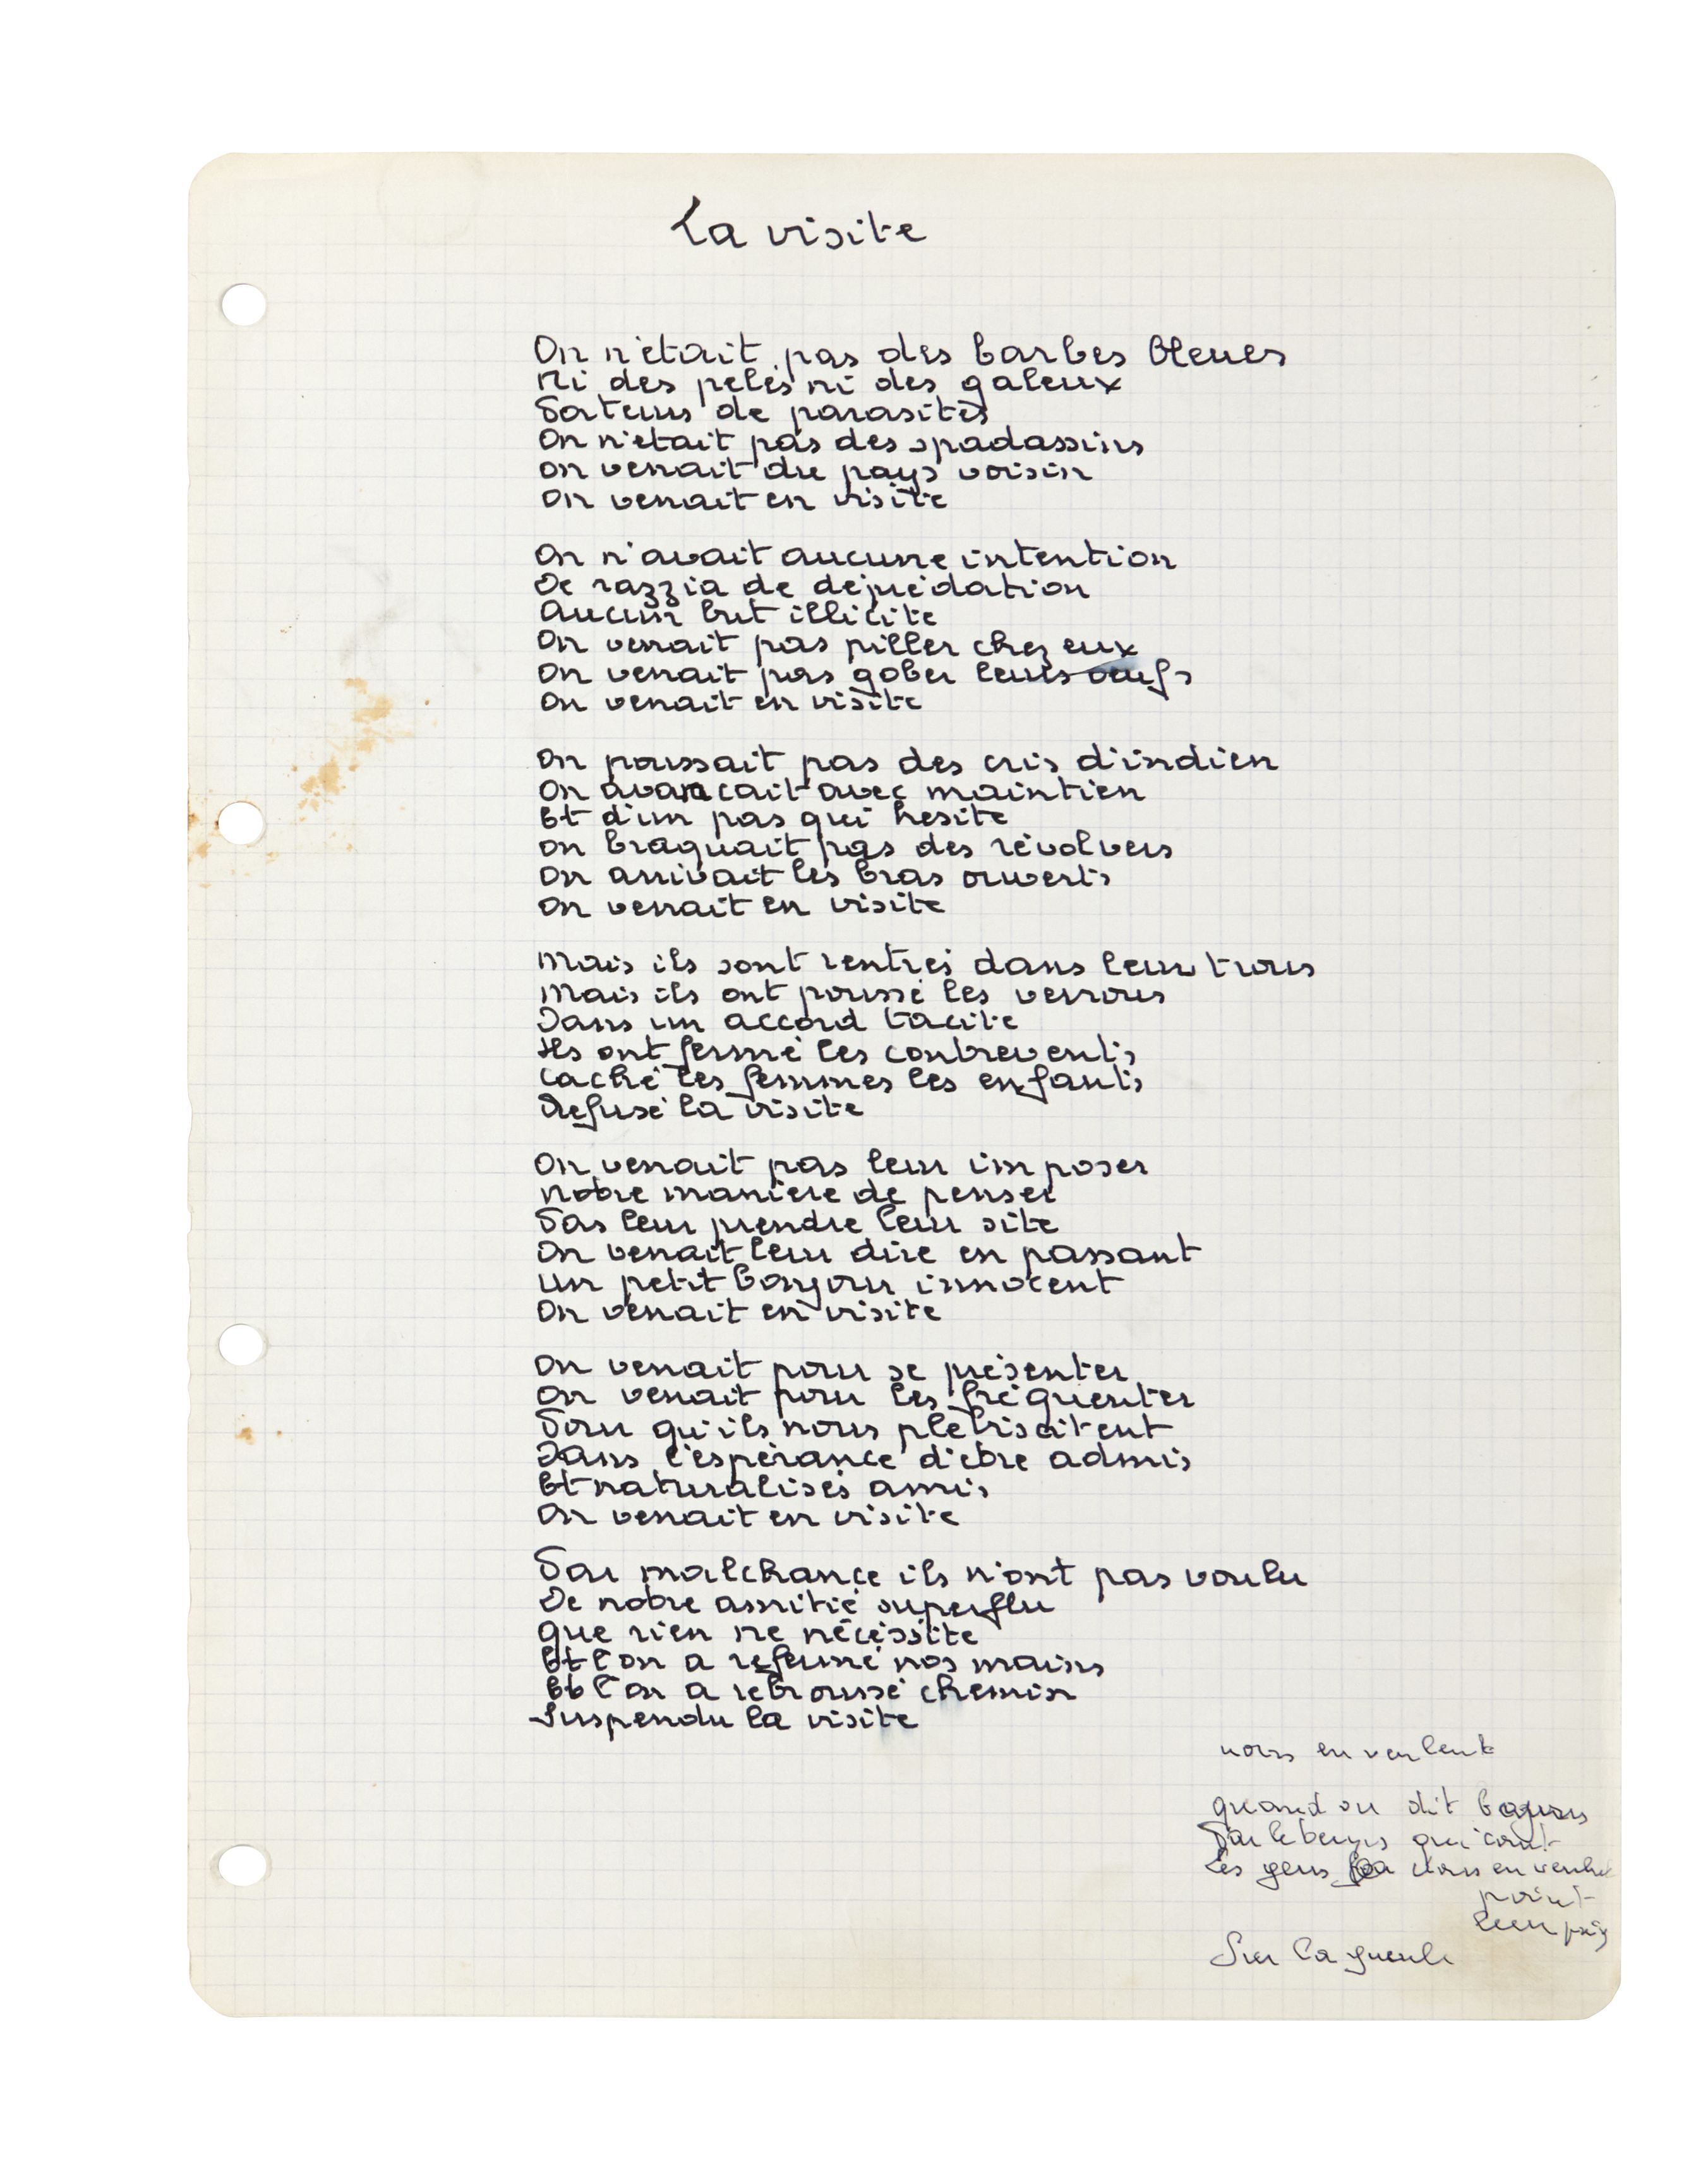 La visite
On n'était pas des barbes bleues
Ni des pelés ni des galeux
Porteurs de parasites
On n'etait pas des spadassins
on venait du pays voisin
On venait en visite
On n'avait aucune intention
De razzia de déprédation
Aucun but illicite
On venait pas piller chez eux
On venait pas gober leurs oeufs
On venait en visite
On poussait pas des cris d'indien
On avancait avec maintien
Et d'un pas qui hesite
on braquait pas des révolvers
On arrivait les bras ouverts
On venait en visite
Mais ils sont rentrés dans leurs trous
Mais ils ont poussé les verrous
Dans un accord tacite
Ils ont fermé les contrevents
Caché les femmes les enfants
Refusé la visite
On venait pas leur imposer
Notre maniere de penser
Pas leur prendre leur site
On venait leur dire en passant
Un petit bonjour innocent
On venait en visite
On venait pour se présenter
On venait pour les fréquenter
Pour qu'ils nous plébiscitent
Dans l'espérance d'etre admis
Et naturalisés amis
On venait en visite
Par malchance ils n'ont pas voulu
De notre amitié superflu
Que rien ne nécéssite
Et l'on a refermé nos mains
Et l'on a rebroussé chemin
Suspendu la visite
nous en veulent
quand on dit
Par le temps qui court
Les gens nous en
point
leur
Sur la gueule